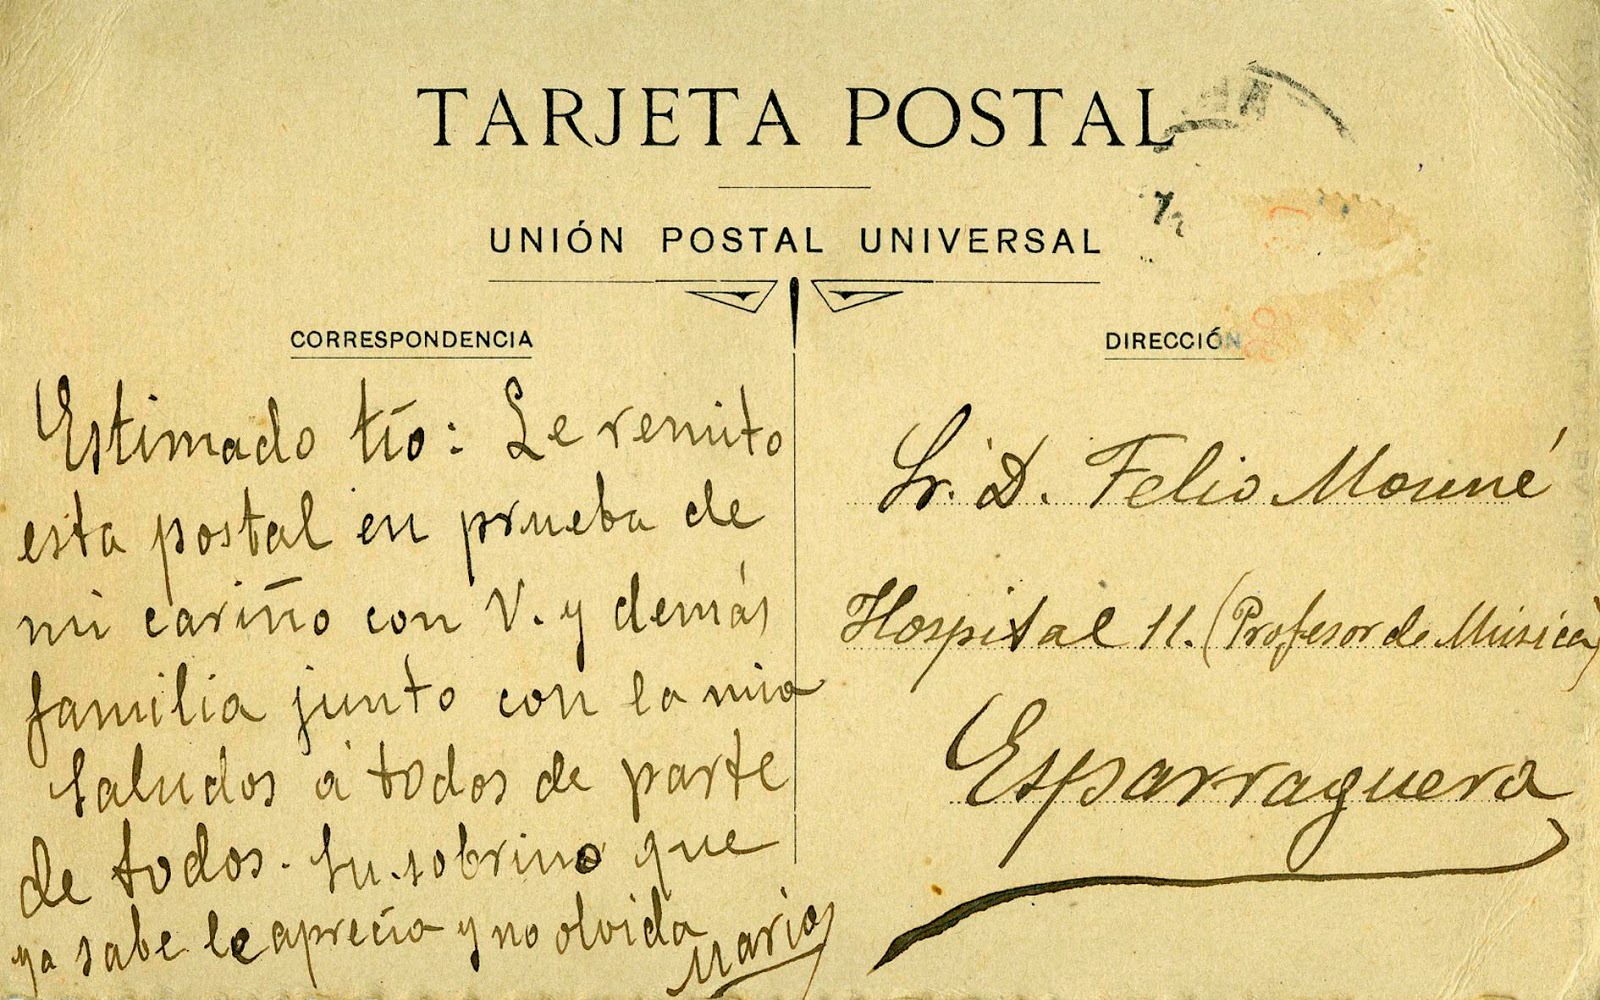 TARJETA POSTAL
UNIÓN POSTAL UNIVERSAL
CORRESPONDENCIA
Estimado tío: Le remito
esta postal en prueba de
mi cariño con V. y demás
familia junto con la mia
saludos á todos de parte
de todos. Su sobrino que
ya sabe le aprecia y no olvida
DIRECCIÓN
Sr. D. Felio Mouné
Hospital 11. (Profesor de Música)
Esparraguera